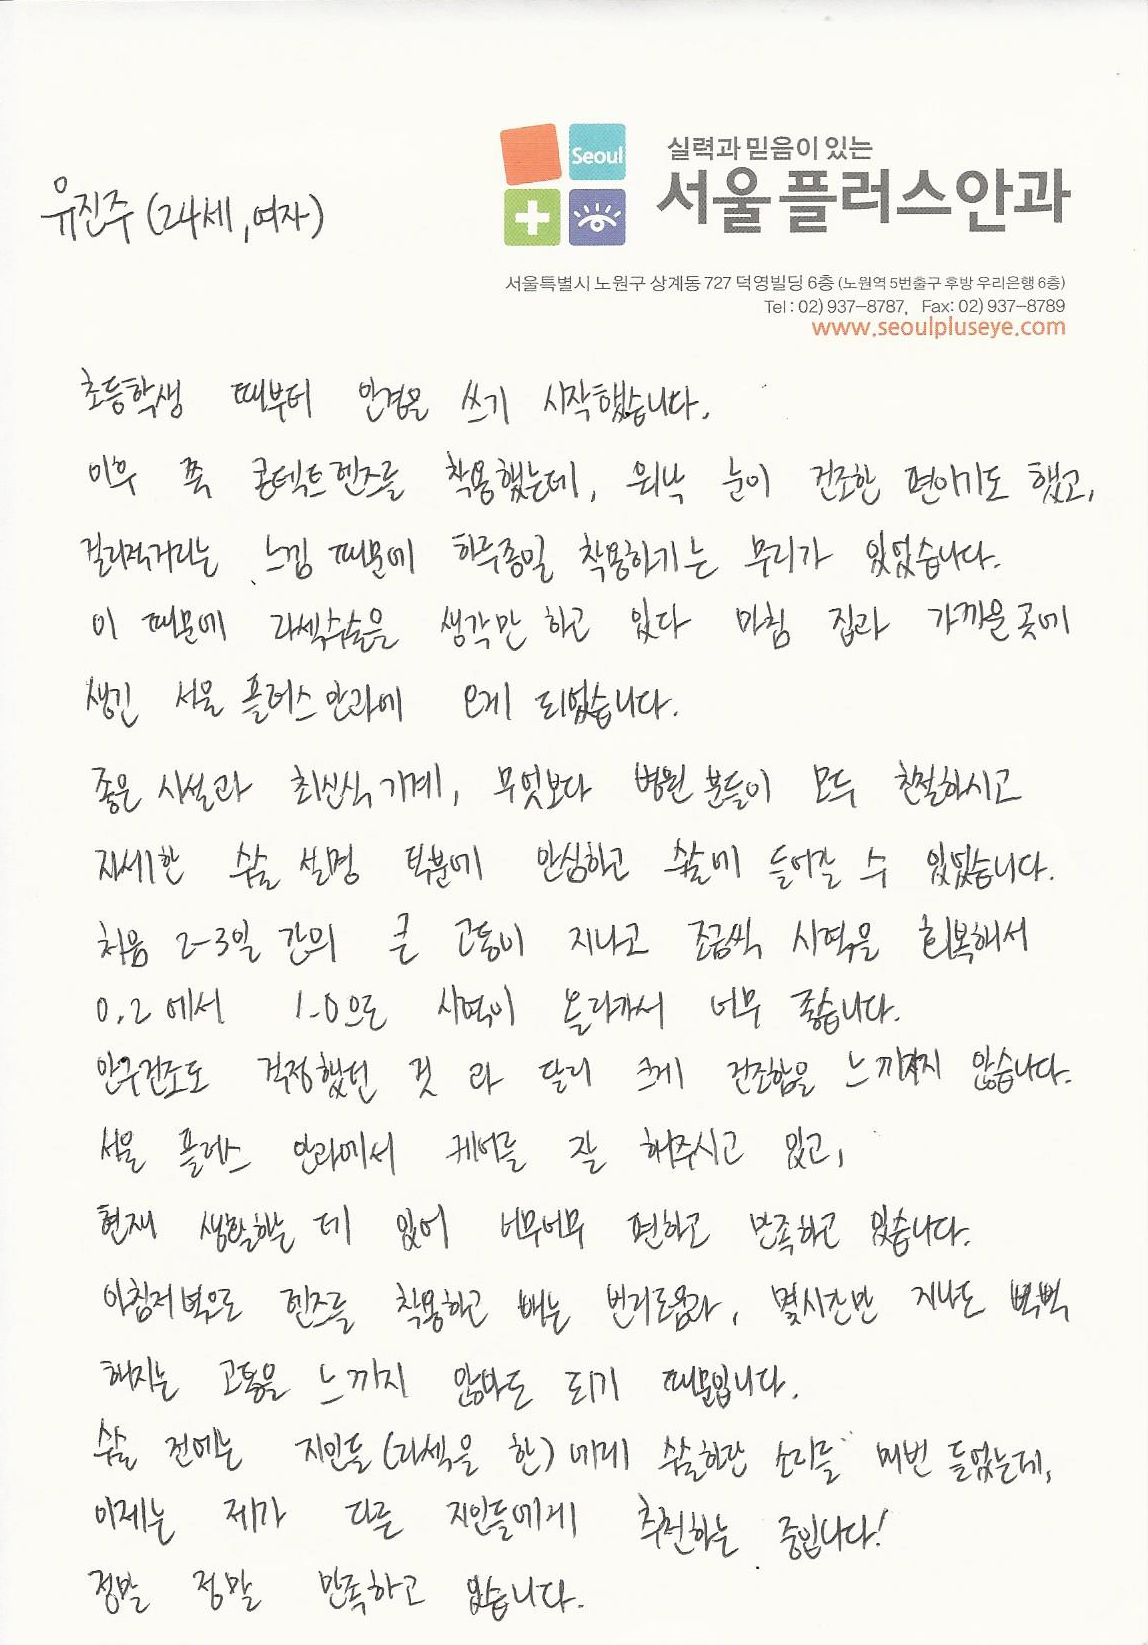 Seoul
실력과 믿음이 있는
서울플러스안과
유진주 (24세, 여자)
서울특별시 노원구 상계동 727 덕영빌딩 6층 (노원역 5번출구 후방 우리은행 6층)
Tel : 02) 937-8787,  Fax: 02) 937-8789
www.seoulpluseye.com
초등학생 때부터 안경을 쓰기 시작했습니다.
이후 쭉 콘텍트렌즈를 착용했는데, 워낙 눈이 건조한 편이기도 했고,
걸리적거리는 느낌 때문에 하루종일 착용하기는 무리가 있었습니다.
이 때문에 라섹수술을 생각만 하고 있다 마침 집과 가까운 곳에
생긴 서울 플러스 안과에 오게 되었습니다.
좋은 시설과 최신식 기계, 무엇보다 병원 분들이 모두 친절하시고
자세한 수술 설명 덕분에 안심하고 수술에 들어갈 수 있었습니다.
처음 2-3일 간의 큰 고통이 지나고 조금씩 시력을 회복해서
0.2 에서 1.0으로 시력이 올라가서 너무 좋습니다.
안구건조도 걱정했던 것 과 달리 크게 건조함을 느끼지 않습니다.
서울 플러스 안과에서 케어를 잘 해주시고 있고,
현재 생활하는 데 있어 너무너무 편하고 만족하고 있습니다.
아침저녁으로 렌즈를 착용하고 빼는 번리로움과, 몇시간만 지나도 뻑뻑
해지는 고통을 느끼지 않아도 되기 때문입니다.
수술 전에는 지인들 (라섹을 한) 에게 수술하란 소리를 매번 들었는데,
이제는 제가 다른 지인들에게 추천하는 중입니다!
정말 정말 만족하고 있습니다.